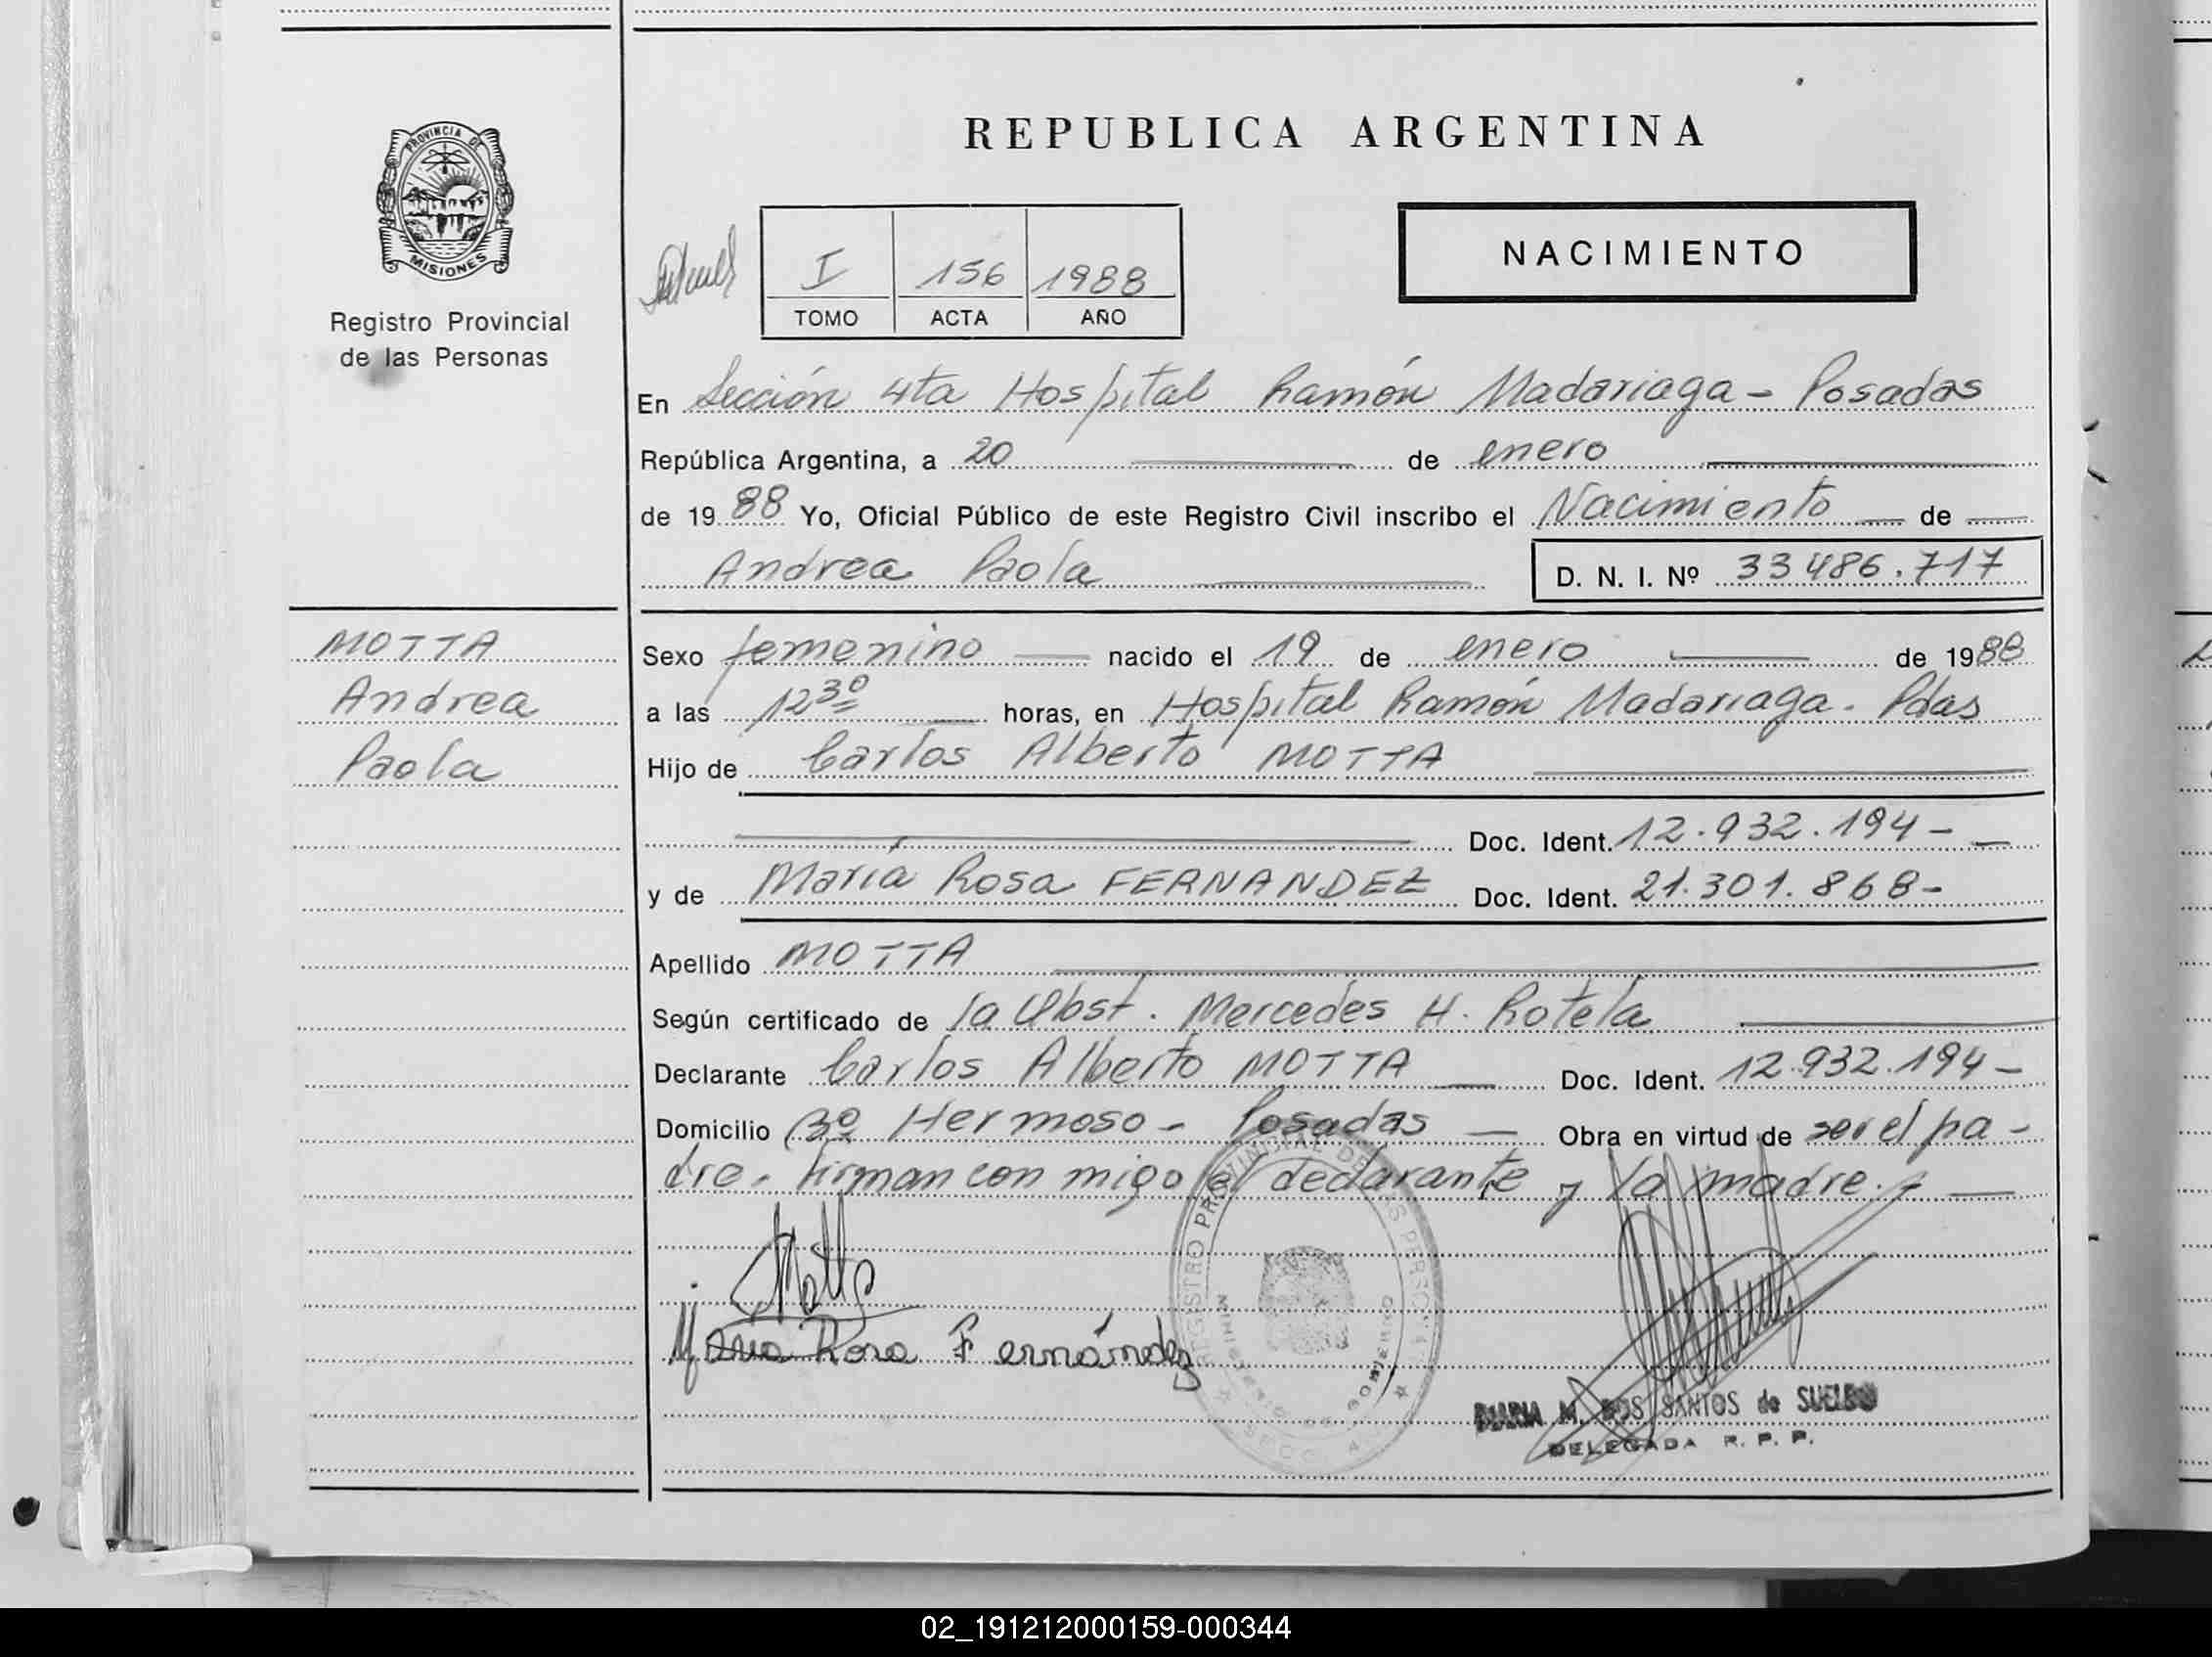 REPUBLICA ARGENTINA
PROVINCIA DE
MISIONES
Registro Provincial
de las Personas
NACIMIENTO
I 156 1988
TOMO ACTA AÑO
En Sección 4ta Hospital Ramón Madariaga - Posadas
República Argentina, a 20 de enero
de 1988 Yo, Oficial Público de este Registro Civil inscribo el Nacimiento de
Andrea Paola D. N. I. Nº 33486.717
MOTTA
Andrea
Paola
Sexo femenino nacido el 19 de enero de 1988
a las 12 30 horas, en Hospital Ramón Madariaga. Pdas
Hijo de Carlos Alberto MOTTA
Doc. Ident. 12.932.194-
y de María Rosa FERNANDEZ Doc. Ident. 21.301.868-
Apellido MOTTA
Según certificado de la Obst. Mercedes H. Rotela
Declarante Carlos Alberto MOTTA Doc. Ident. 12.932.194-
Domicilio Bº Hermoso - Posadas Obra en virtud de ser el pa-
dre. Firman con migo el declarante y la madre.
Motta
María Rosa Fernández
REGISTRO PROVINCIAL DE LAS PERSONAS
MINISTERIO DE GOBIERNO
MARIA M. DOS SANTOS de SUELDO
DELEGADA R. P. P.
02_191212000159-000344